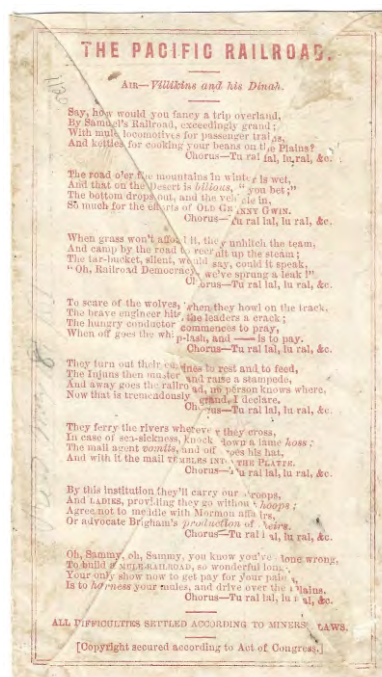 THE PACIFIC RAILROAD.
AIR—Villikins and his Dinah.
1130
Say, how would you fancy a trip overland,
By Samuel's Railroad, exceedingly grand;
With mule locomotives for passenger trains,
And kettles for cooking your beans on the Plains!
Chorus—Tu ral lal, lu ral, &c.
The road o'er the mountains in winter is wet,
And that on the Desert is bilious, "you bet;"
The bottom drops out, and the vehicle in,
So much for the efforts of OLD GRANNY GWIN.
Chorus—Tu ral lal, lu ral, &c.
When grass won't afford it, they unhitch the team,
And camp by the road to recruit up the steam;
The tar-bucket, silent, would say, could it speak,
"Oh, Railroad Democracy, we've sprung a leak!"
Chorus—Tu ral lal, lu ral, &c.
To scare of the wolves, when they howl on the track,
The brave engineer hits the leaders a crack;
The hungry conductor commences to pray,
When off goes the whip-lash, and —— is to pay.
Chorus—Tu ral lal, lu ral, &c.
They turn out their engines to rest and to feed,
The Injuns then muster and raise a stampede,
And away goes the railroad, no person knows where,
Now that is tremendously grand, I declare.
Chorus—Tu ral lal, lu ral, &c.
They ferry the rivers wherever they cross,
In case of sea-sickness, knock down a lame hoss;
The mail agent vomits, and off goes his hat,
And with it the mail TUMBLES INTO THE PLATTE.
Chorus—Tu ral lal, lu ral, &c.
By this institution they'll carry our troops,
And LADIES, providing they go without hoops;
Agree not to meddle with Mormon affairs,
Or advocate Brigham's production of heirs.
Chorus—Tu ral lal, lu ral, &c.
Oh, Sammy, oh, Sammy, you know you've done wrong,
To build a MULE-RAILROAD, so wonderful long,
Your only show now to get pay for your pains,
Is to harness your mules, and drive over the Plains.
Chorus—Tu ral lal, lu ral, &c.
ALL DIFFICULTIES SETTLED ACCORDING TO MINERS' LAWS.
[Copyright secured according to Act of Congress.]